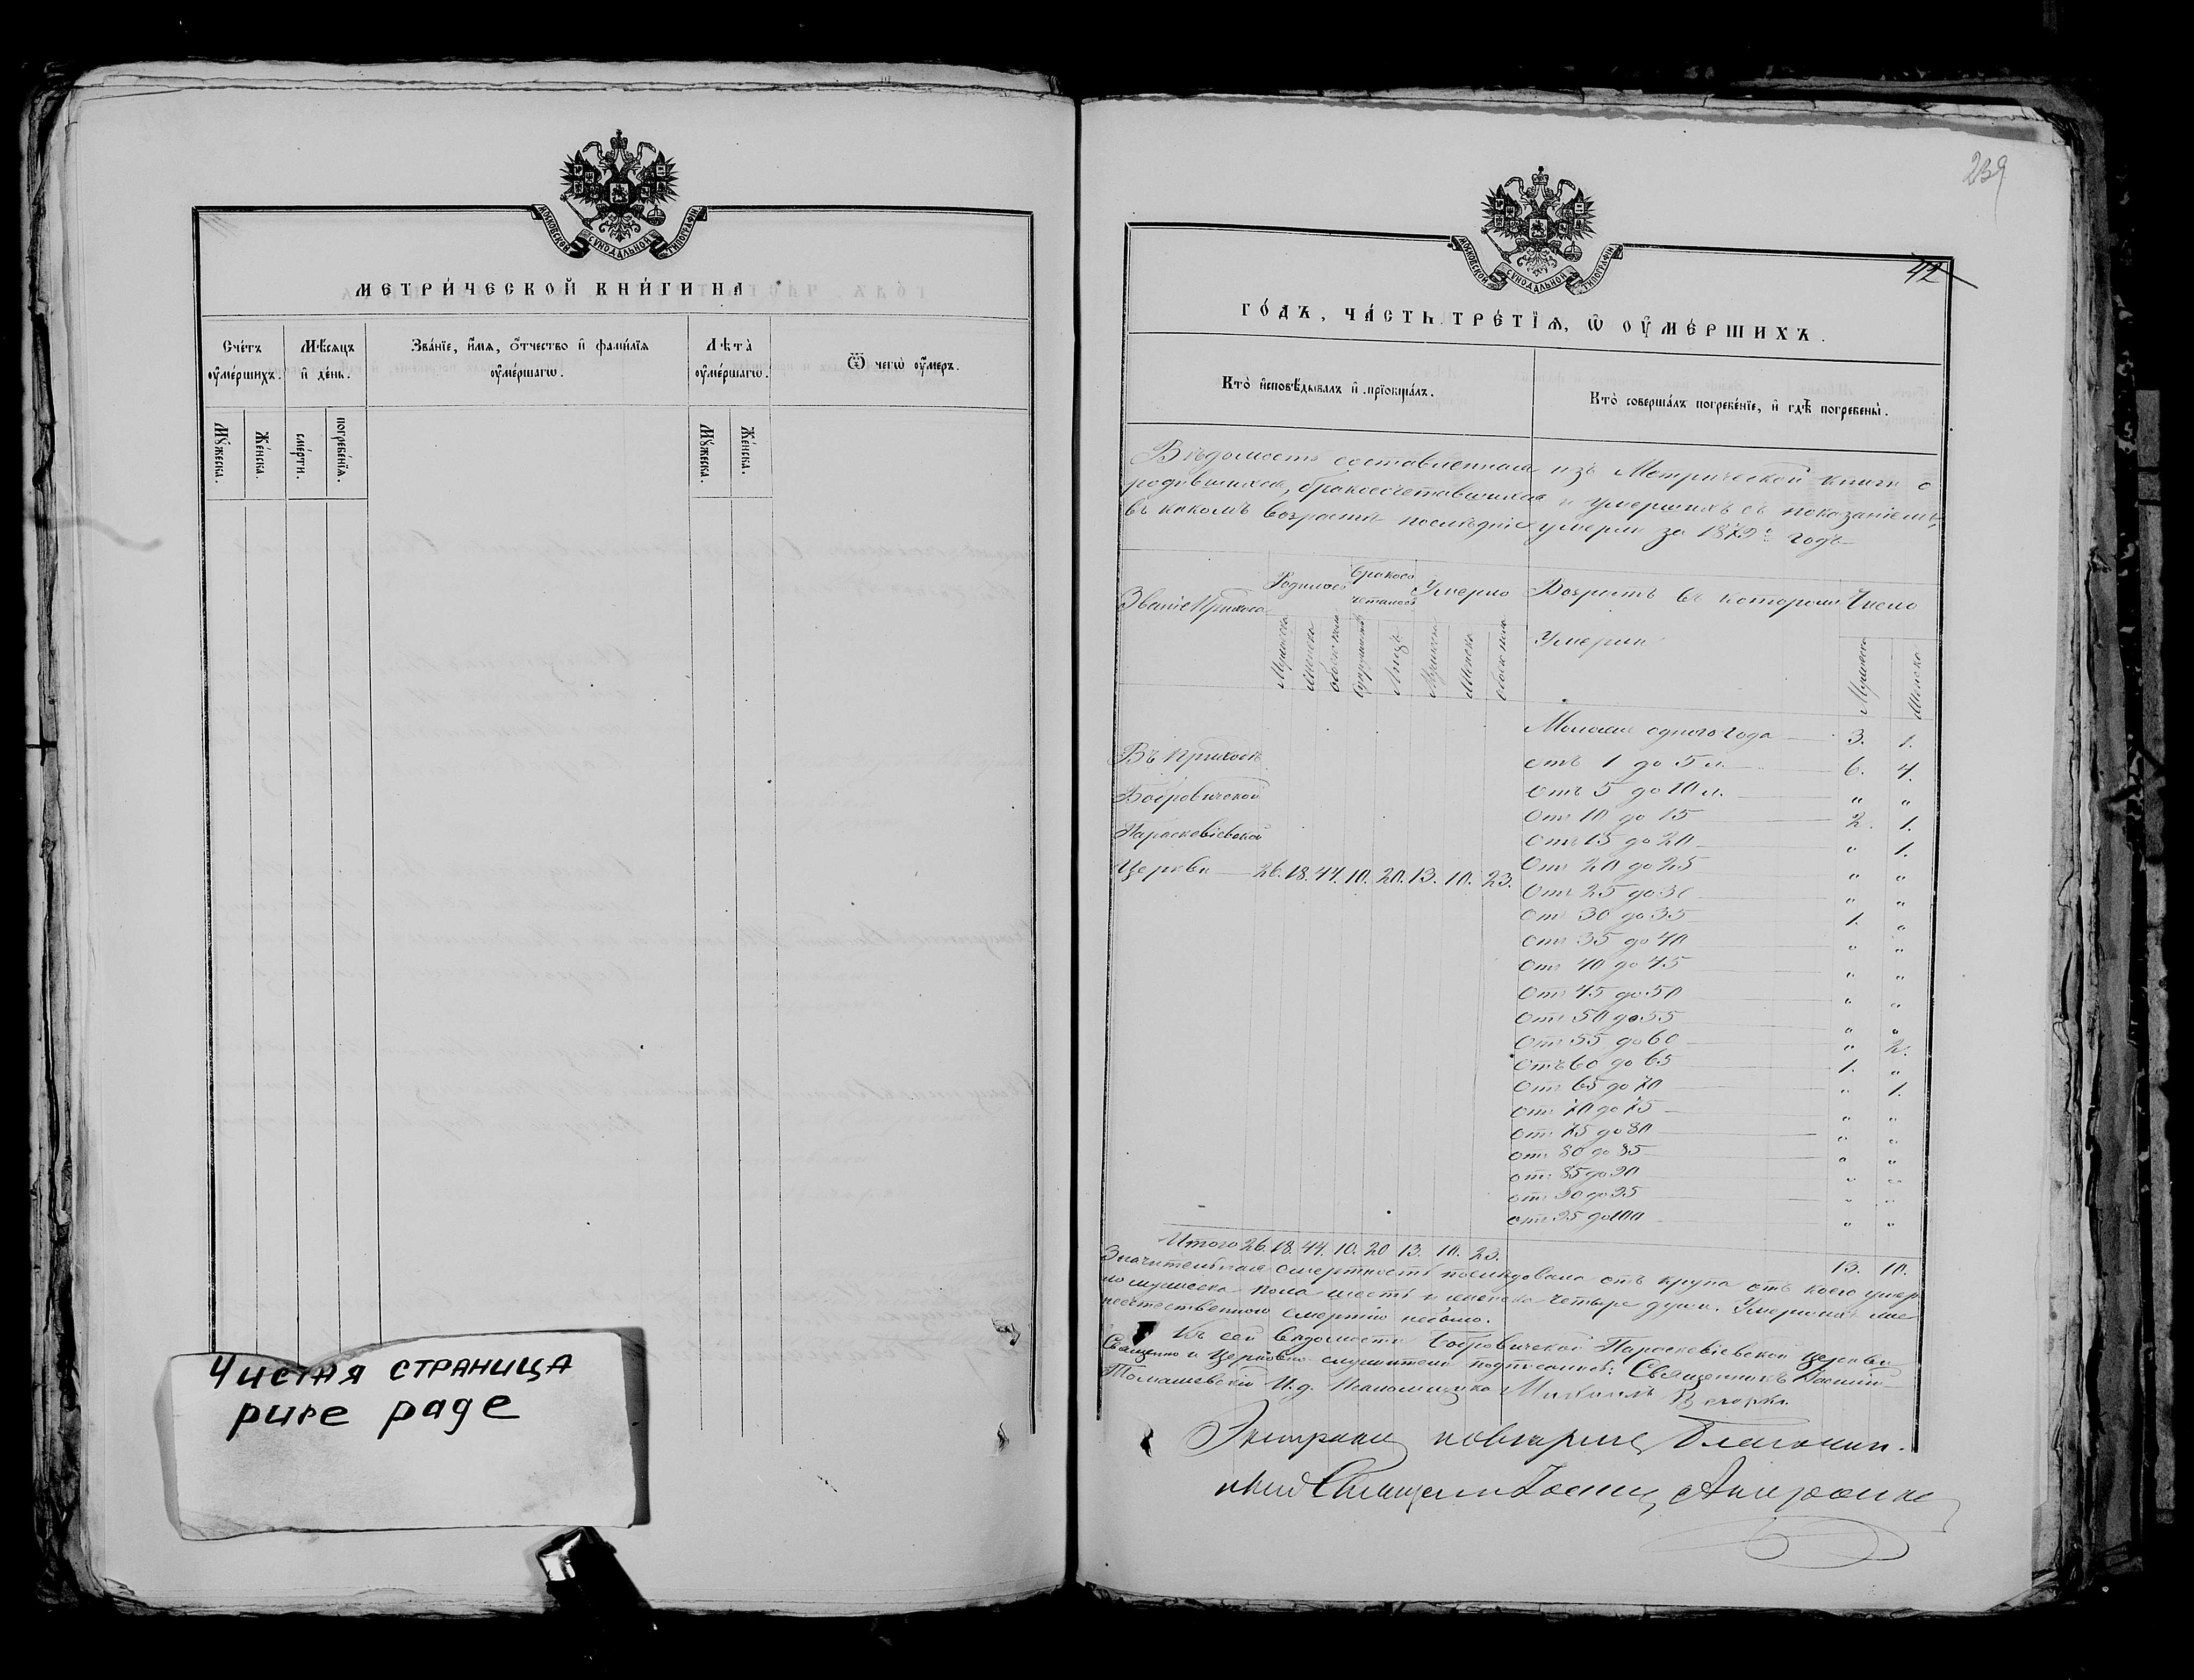 МОСКОВСКОЙ СѴНОДАЛЬНОЙ ТИПОГРАФІИ
МЕТРИ́ЧЕСКОЙ КНИ́ГИ НА
Сче́тъ ᲂу҆ме́ршихъ.
Мѣ́сяцъ и҆ де́нь.
Зва́нїе, и҆́мѧ, ѻ҆́тчество и҆ фами́лїѧ ᲂу҆ме́ршагѡ.
Лѣта̀ ᲂу҆ме́ршагѡ.
Ѿ чегѡ̀ ᲂу҆́меръ.
Мꙋ́жеска.
Же́нска.
сме́рти.
погребе́нїѧ.
Мꙋ́жеска.
Же́нска.
Чистая страница
pure page
239
42
МОСКОВСКОЙ СѴНОДАЛЬНОЙ ТИПОГРАФІИ
ГО́ДЪ, ЧА́СТЬ ТРЕ́ТЇѦ, Ѡ҆ ОУ҆МЕ́РШИХЪ.
Кто̀ и҆сповѣ́дывалъ и҆ прїѻбща́лъ.
Кто̀ соверша́лъ погребе́нїе, и҆ гдѣ̀ погребены̀.
Вѣдомость составленная изъ Метрической книги о
родившихся, бракосочетавшихся и умершихъ съ показаніемъ,
въ какомъ возрастѣ послѣдніе умерли за 1879й годъ
Званіе Прихода
Родилось
Бракосочеталось
Умерло
Возрастъ въ которомъ Умерли
Число
Мужеска
Женска
обоего пола
Супружествъ
Лицъ
Мужеска
Женска
обоего пола
Мужеска
Женска
Моложе одного года 3. 1.
Въ Приходѣ
отъ 1 до 5 л. 6. 4.
Бобровичской
отъ 5 до 10 л. " "
Отъ 10 до 15 2. 1.
Параскевіевской
Отъ 15 до 20 " 1.
Церкви 26. 18. 44. 10. 20. 13. 10. 23.
Отъ 20 до 25 " "
Отъ 25 до 30 " "
Отъ 30 до 35 1. "
Отъ 35 до 40 " "
Отъ 40 до 45 " "
Отъ 45 до 50 " "
Отъ 50 до 55 " "
Отъ 55 до 60 " 2.
Отъ 60 до 65 1. "
Отъ 65 до 70 " 1.
Отъ 70 до 75 " "
Отъ 75 до 80 " "
Отъ 80 до 85 " "
отъ 85 до 90 " "
отъ 90 до 95 " "
отъ 95 до 100 " "
Итого 26. 18. 44. 10. 20 13. 10. 23. 13. 10.
Значительная смертность послѣдовала отъ крупа отъ коего умер
ло мужеска пола шесть и женска четыре души. Умершихъ же
неестественною смертію небыло.
Къ сей вѣдомости Бобровичской Параскевіевской церкви
Священно и Церковно служители подписались: Священникъ
Томашевскій И. д. Псаломщика Михаилъ
Священникъ